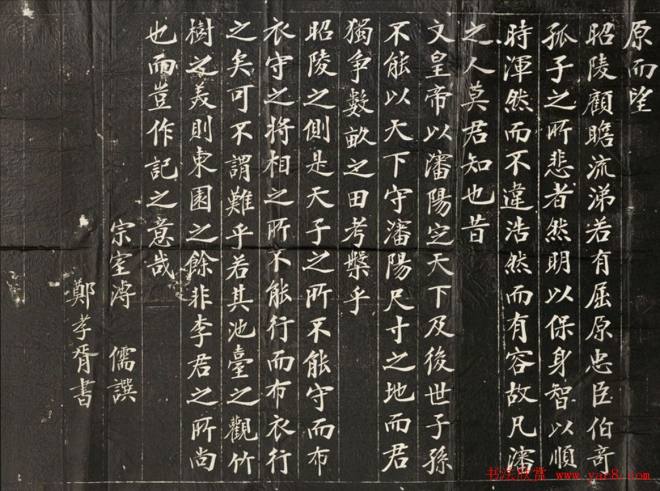 原而望
昭陵顧瞻流涕若有屈原忠臣伯奇
孤子之所悲者然明以保身智以順
時渾然而不違浩然而有容故凡瀋
之人莫君知也昔
文皇帝以瀋陽定天下及後世子孫
不能以天下守瀋陽尺寸之地而君
獨爭數畝之田考槃乎
昭陵之側是天子之所不能守而布
衣守之將相之所不能行而布衣行
之矣可不謂難乎若其池臺之觀竹
樹之美則東園之餘非李君之所尚
也而豈作記之意哉
宗室溥 儒譔
鄭孝胥書
书法欣赏 www.yac8.com